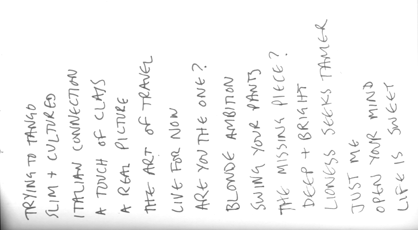 TRYING TO TANGO
SLIM + CULTURED
ITALIAN CONNECTION
A TOUCH OF CLASS
A REAL PICTURE
THE ART OF TRAVEL
LIVE FOR NOW
ARE YOU THE ONE?
BLONDE AMBITION
SWING YOUR PANTS
THE MISSING PIECE?
DEEP + BRIGHT
LIONESS SEEKS TAMER
JUST ME
OPEN YOUR MIND
LIFE IS SWEET